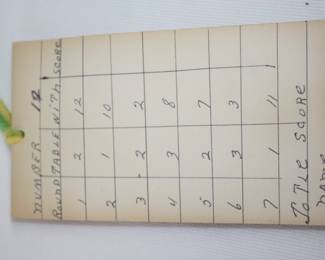 NUMBER 12
ROUND TABLE WITH SCORE
1 2 12
2 1 10
3 2 2
4 3 8
5 2 7
6 3 3
7 1 11
TOTLE SCORE
NAME